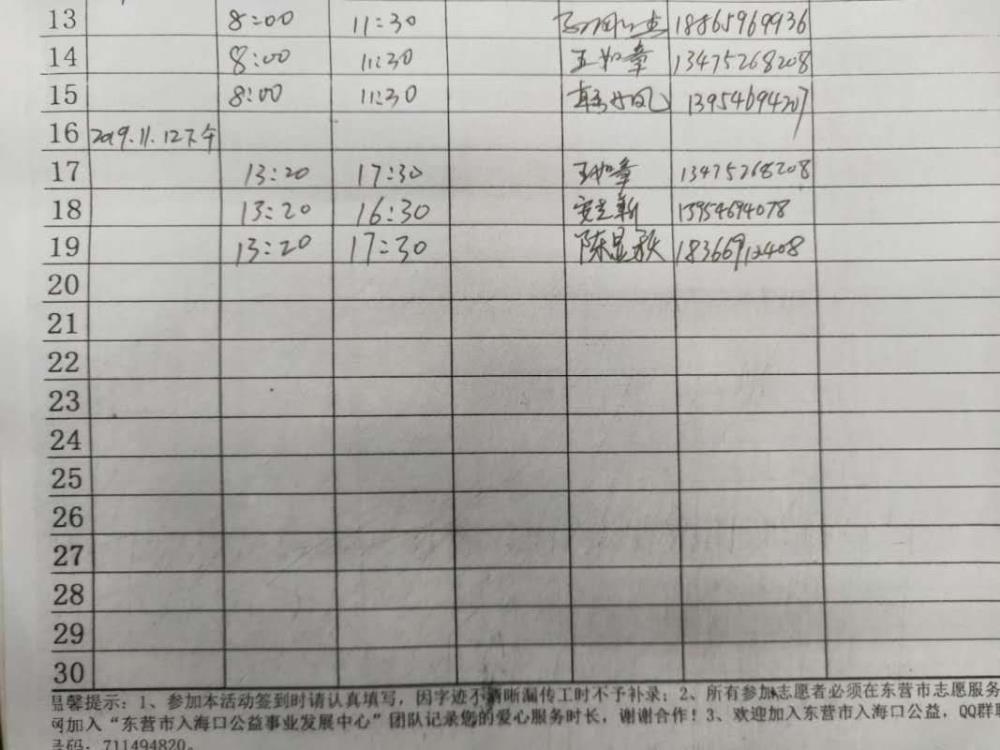 13 8:00 11:30 18865969936
14 8:00 11:30 王如章 13475268208
15 8:00 11:30 13954694207
16 2019.11.12下午
17 13:20 17:30 王如章 13475268208
18 13:20 16:30 安志新 13954694078
19 13:20 17:30 陈显 18366912408
20
21
22
23
24
25
26
27
28
29
30
温馨提示：1、参加本活动签到时请认真填写，因字迹不清晰漏传工时不予补录；2、所有参加志愿者必须在东营市志愿服务
网加入“东营市入海口公益事业发展中心”团队记录您的爱心服务时长，谢谢合作！3、欢迎加入东营市入海口公益，QQ群
号码：711494820。